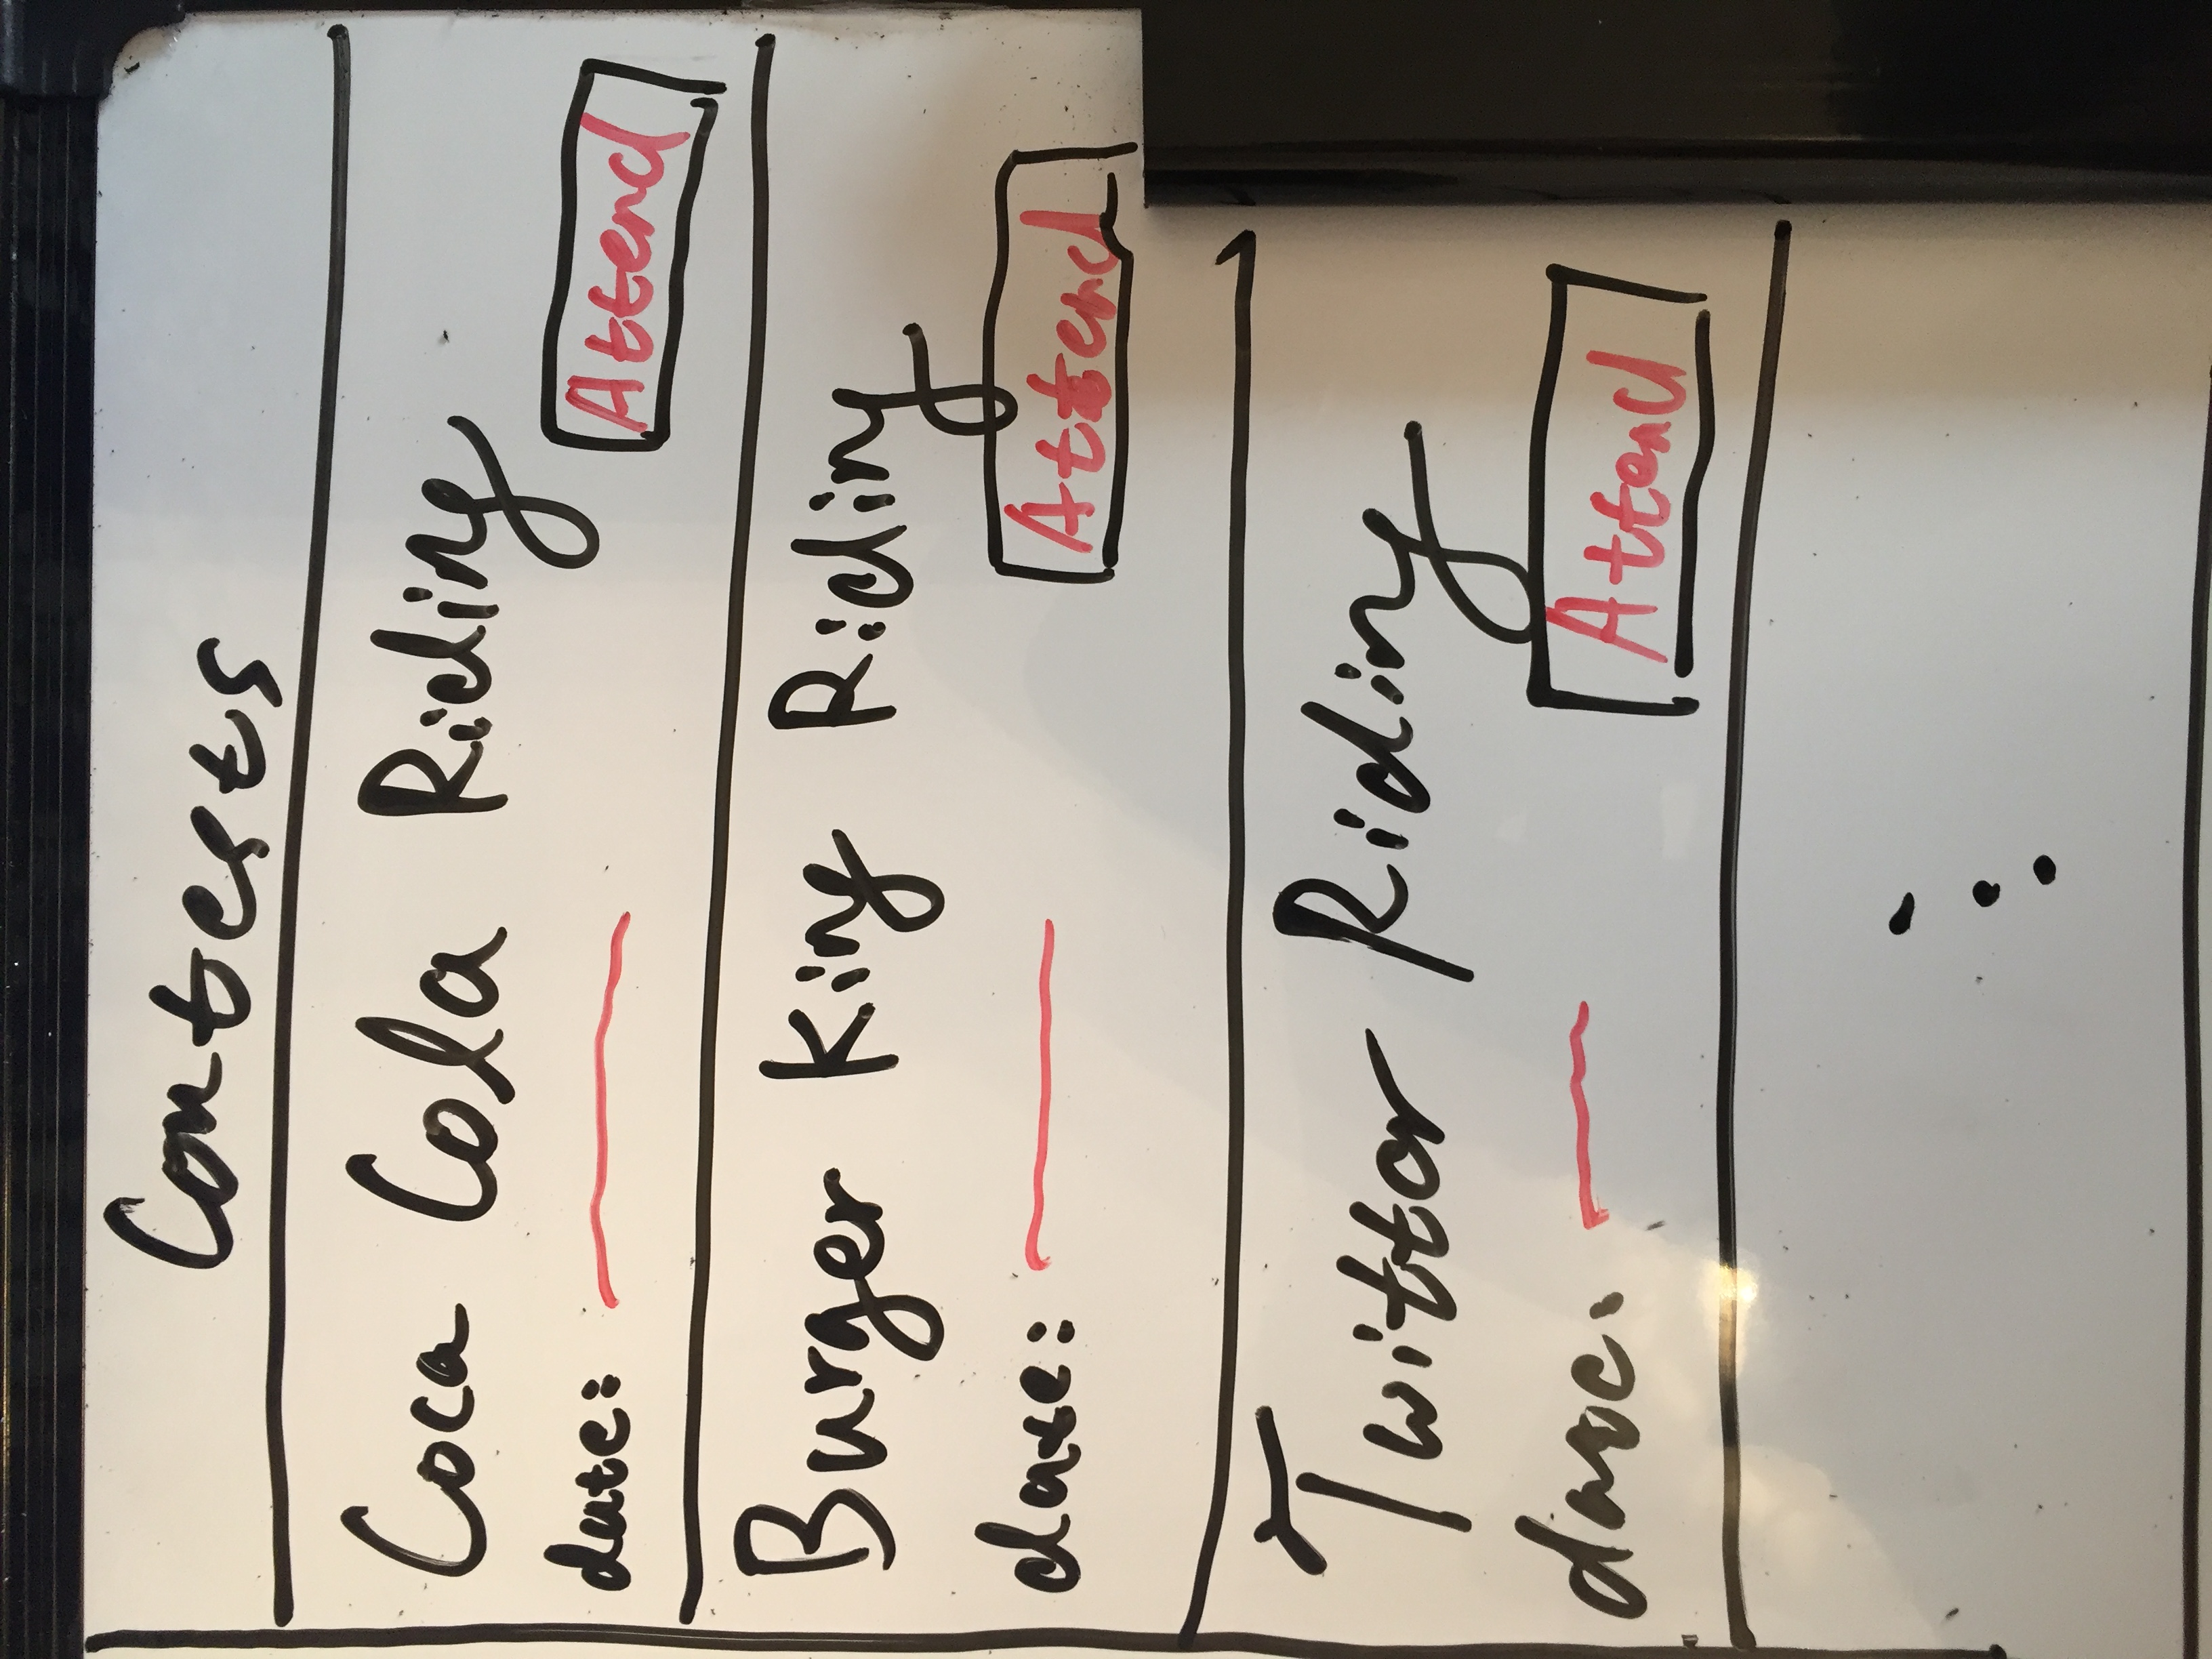 Contests
Coca Cola Riding
date:
Attend
Burger King Riding
date:
Attend
Twitter Riding
date:
Attend